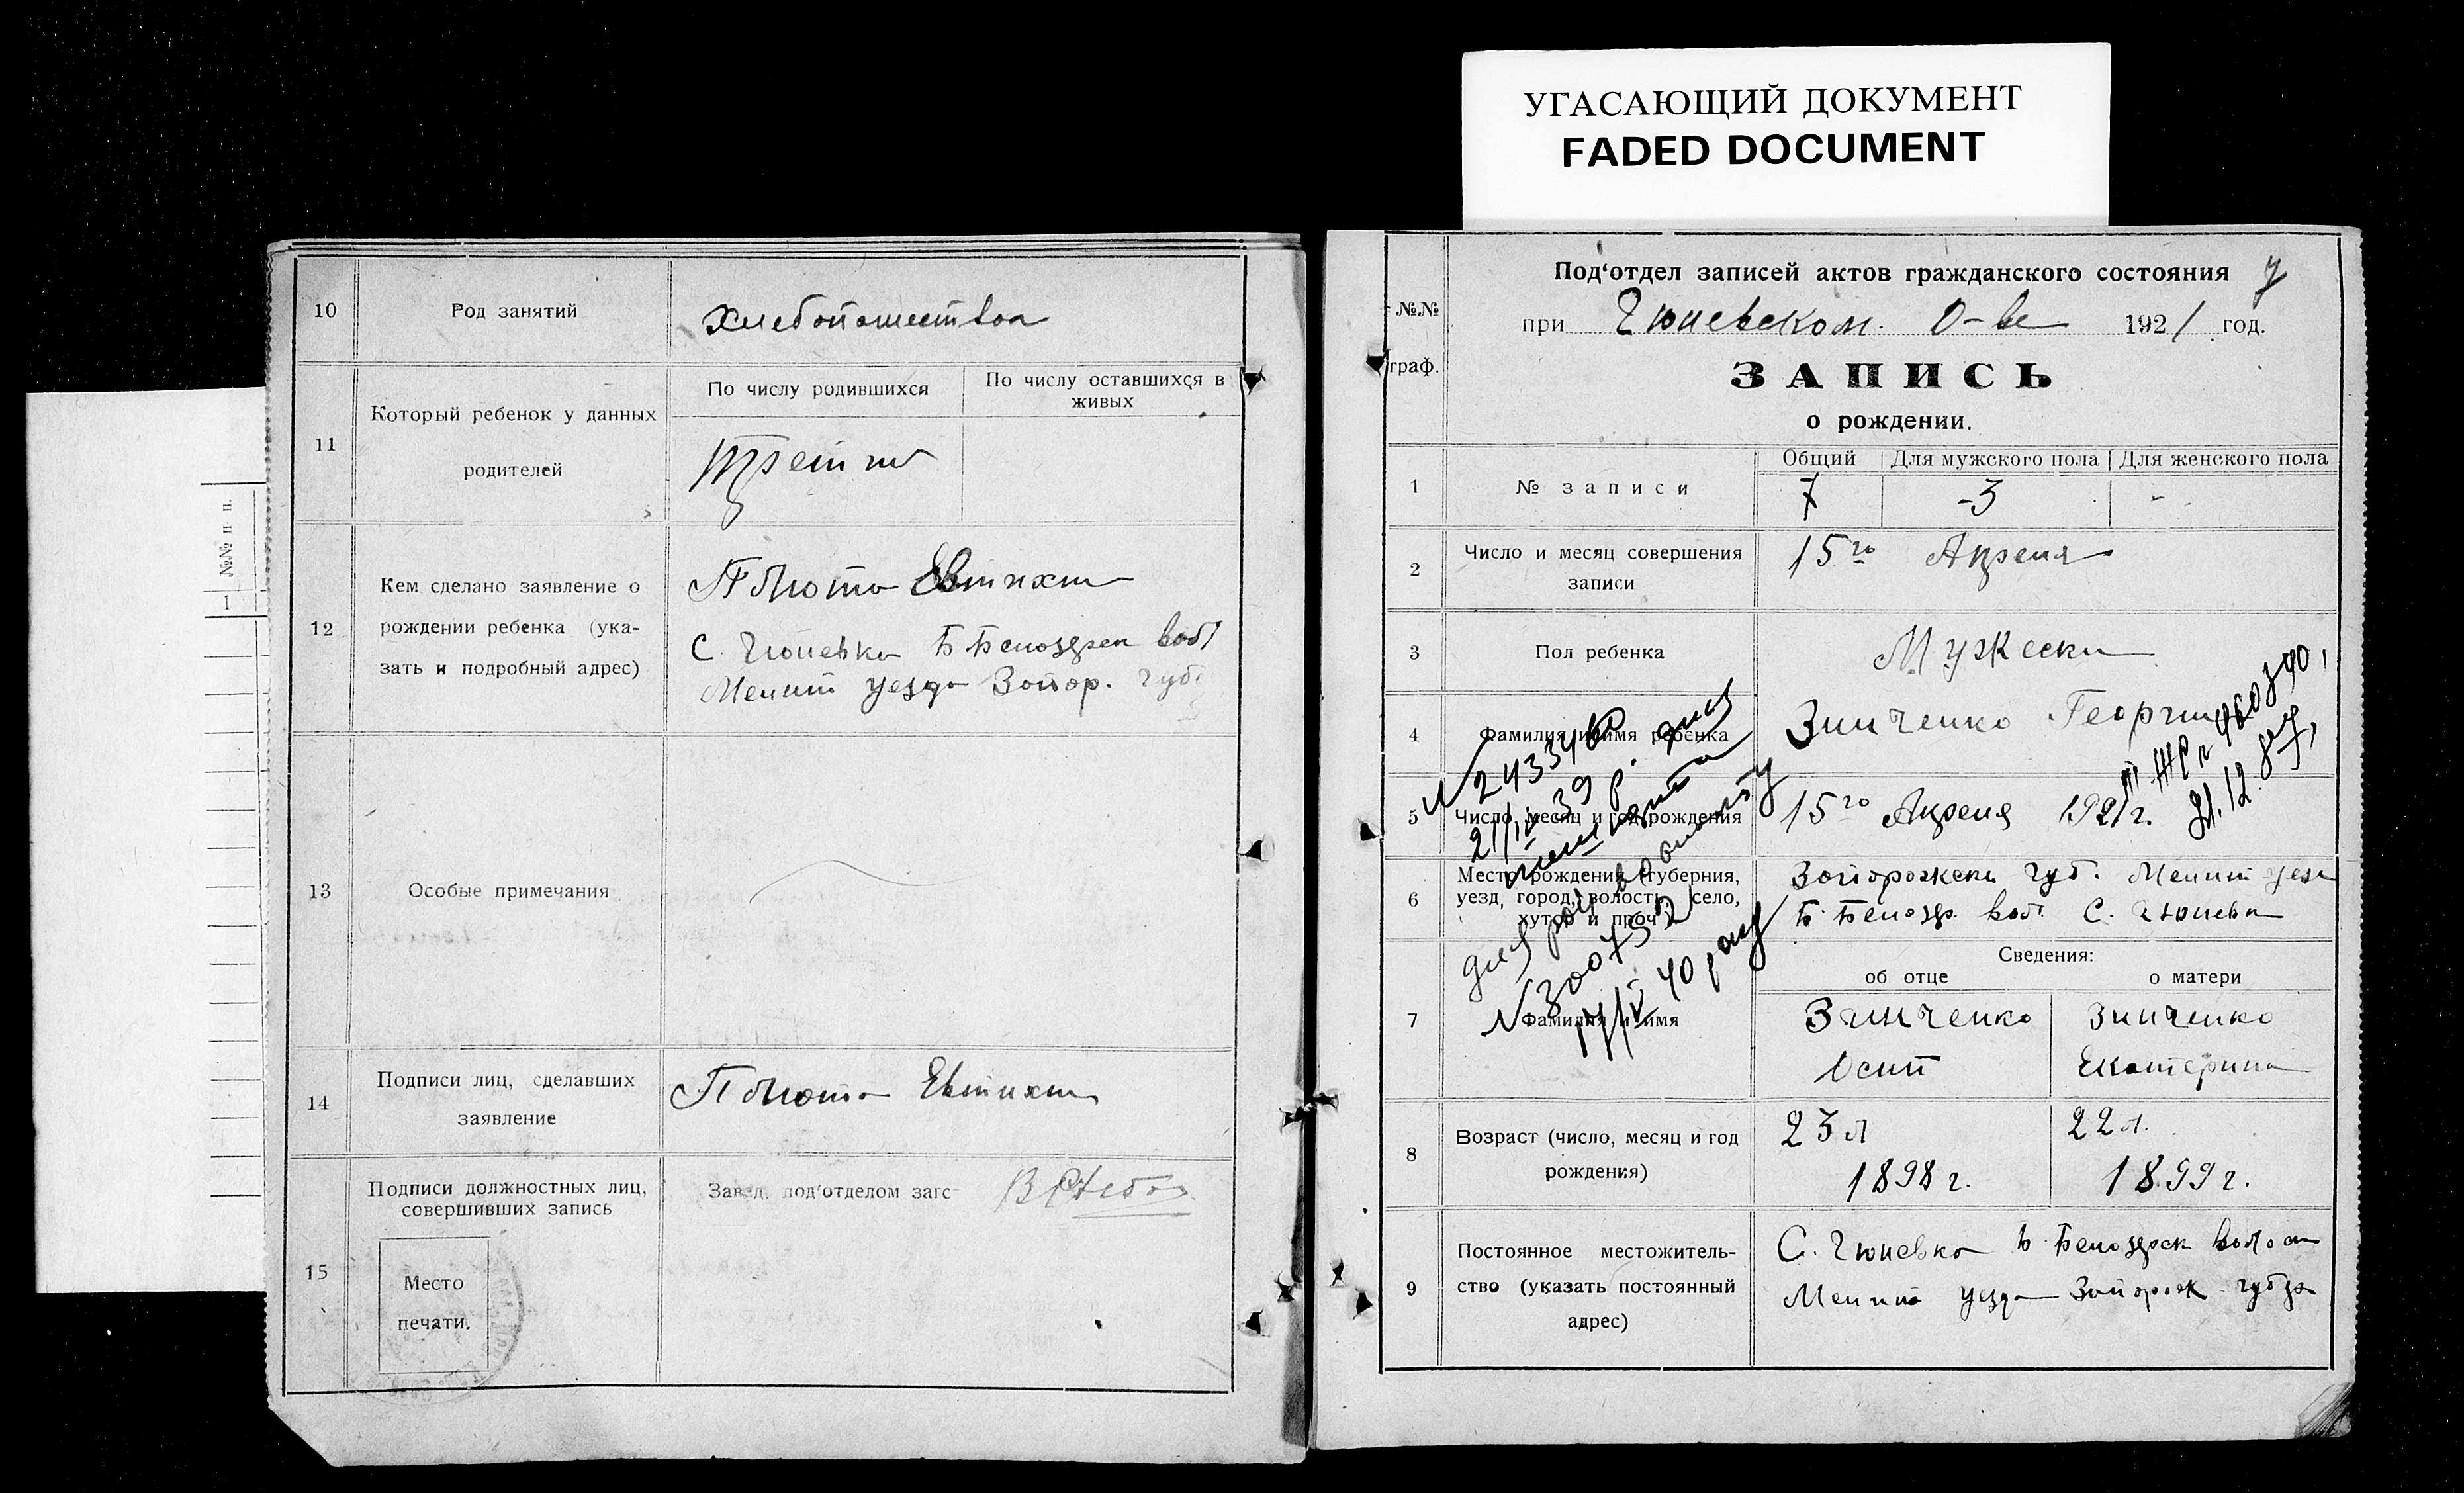 УГАСАЮЩИЙ ДОКУМЕНТ
FADED DOCUMENT
№№ п п.
1
10
Род занятий
11
Который ребенок у данных
родителей
По числу родившихся
По числу оставшихся в
живых
12
Кем сделано заявление о
рождении ребенка (ука-
зать и подробный адрес)
Евтихи
С. Б Белозерск вол
Мелит уезда Запор. губ
13
Особые примечания
14
Подписи лиц, сделавших
заявление
Евтихи
15
Подписи должностных лиц,
совершивших запись
Завед. под'отделом загс
Место
печати.
7
№№
граф.
Под‘отдел записей актов гражданского состояния
при О-ве 1921 год.
ЗАПИСЬ
о рождении.
1
№ записи
Общий
Для мужского пола
Для женского пола
7
-3
-
2
Число и месяц совершения
записи
15го Апреля
3
Пол ребенка
Мужески
4
Фамилия и имя ребенка
Зинченко Георгий
5
Число, месяц и год рождения
15го Апреля 1921г.
6
Место рождения (губерния,
уезд, город, волость, село,
хутор и проч.)
Запорожски губ. Мелит уезд
Б. Белозер. вол. С.
7
Фамилия и имя
Сведения:
об отце
о матери
Зинченко
Осип
Зинченко
Екатерина
8
Возраст (число, месяц и год
рождения)
23 л
1898 г.
22 л.
1899 г.
9
Постоянное местожитель-
ство (указать постоянный
адрес)
С. Б. Белозерск волост
Мелит уезда Запорож губер
№ 300752